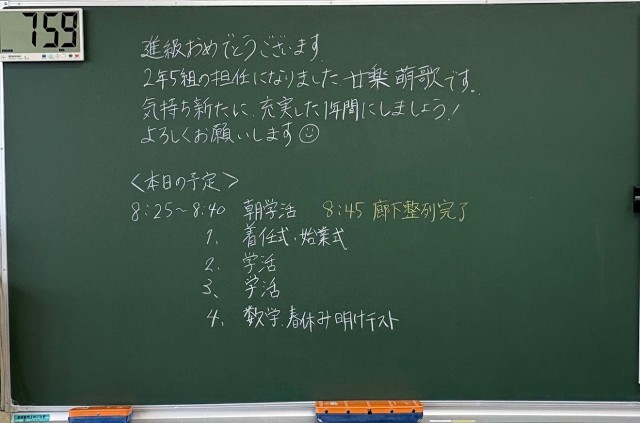 759
進級おめでとうございます.
2年5組の担任になりました、甘楽 萌歌です.
気持ち新たに、充実した1年間にしましょう!
よろしくお願いします☺
<本日の予定>
8:25〜8:40 朝学活 8:45 廊下整列完了
1. 着任式・始業式
2. 学活
3、 学活
4、 数学、春休み明けテスト